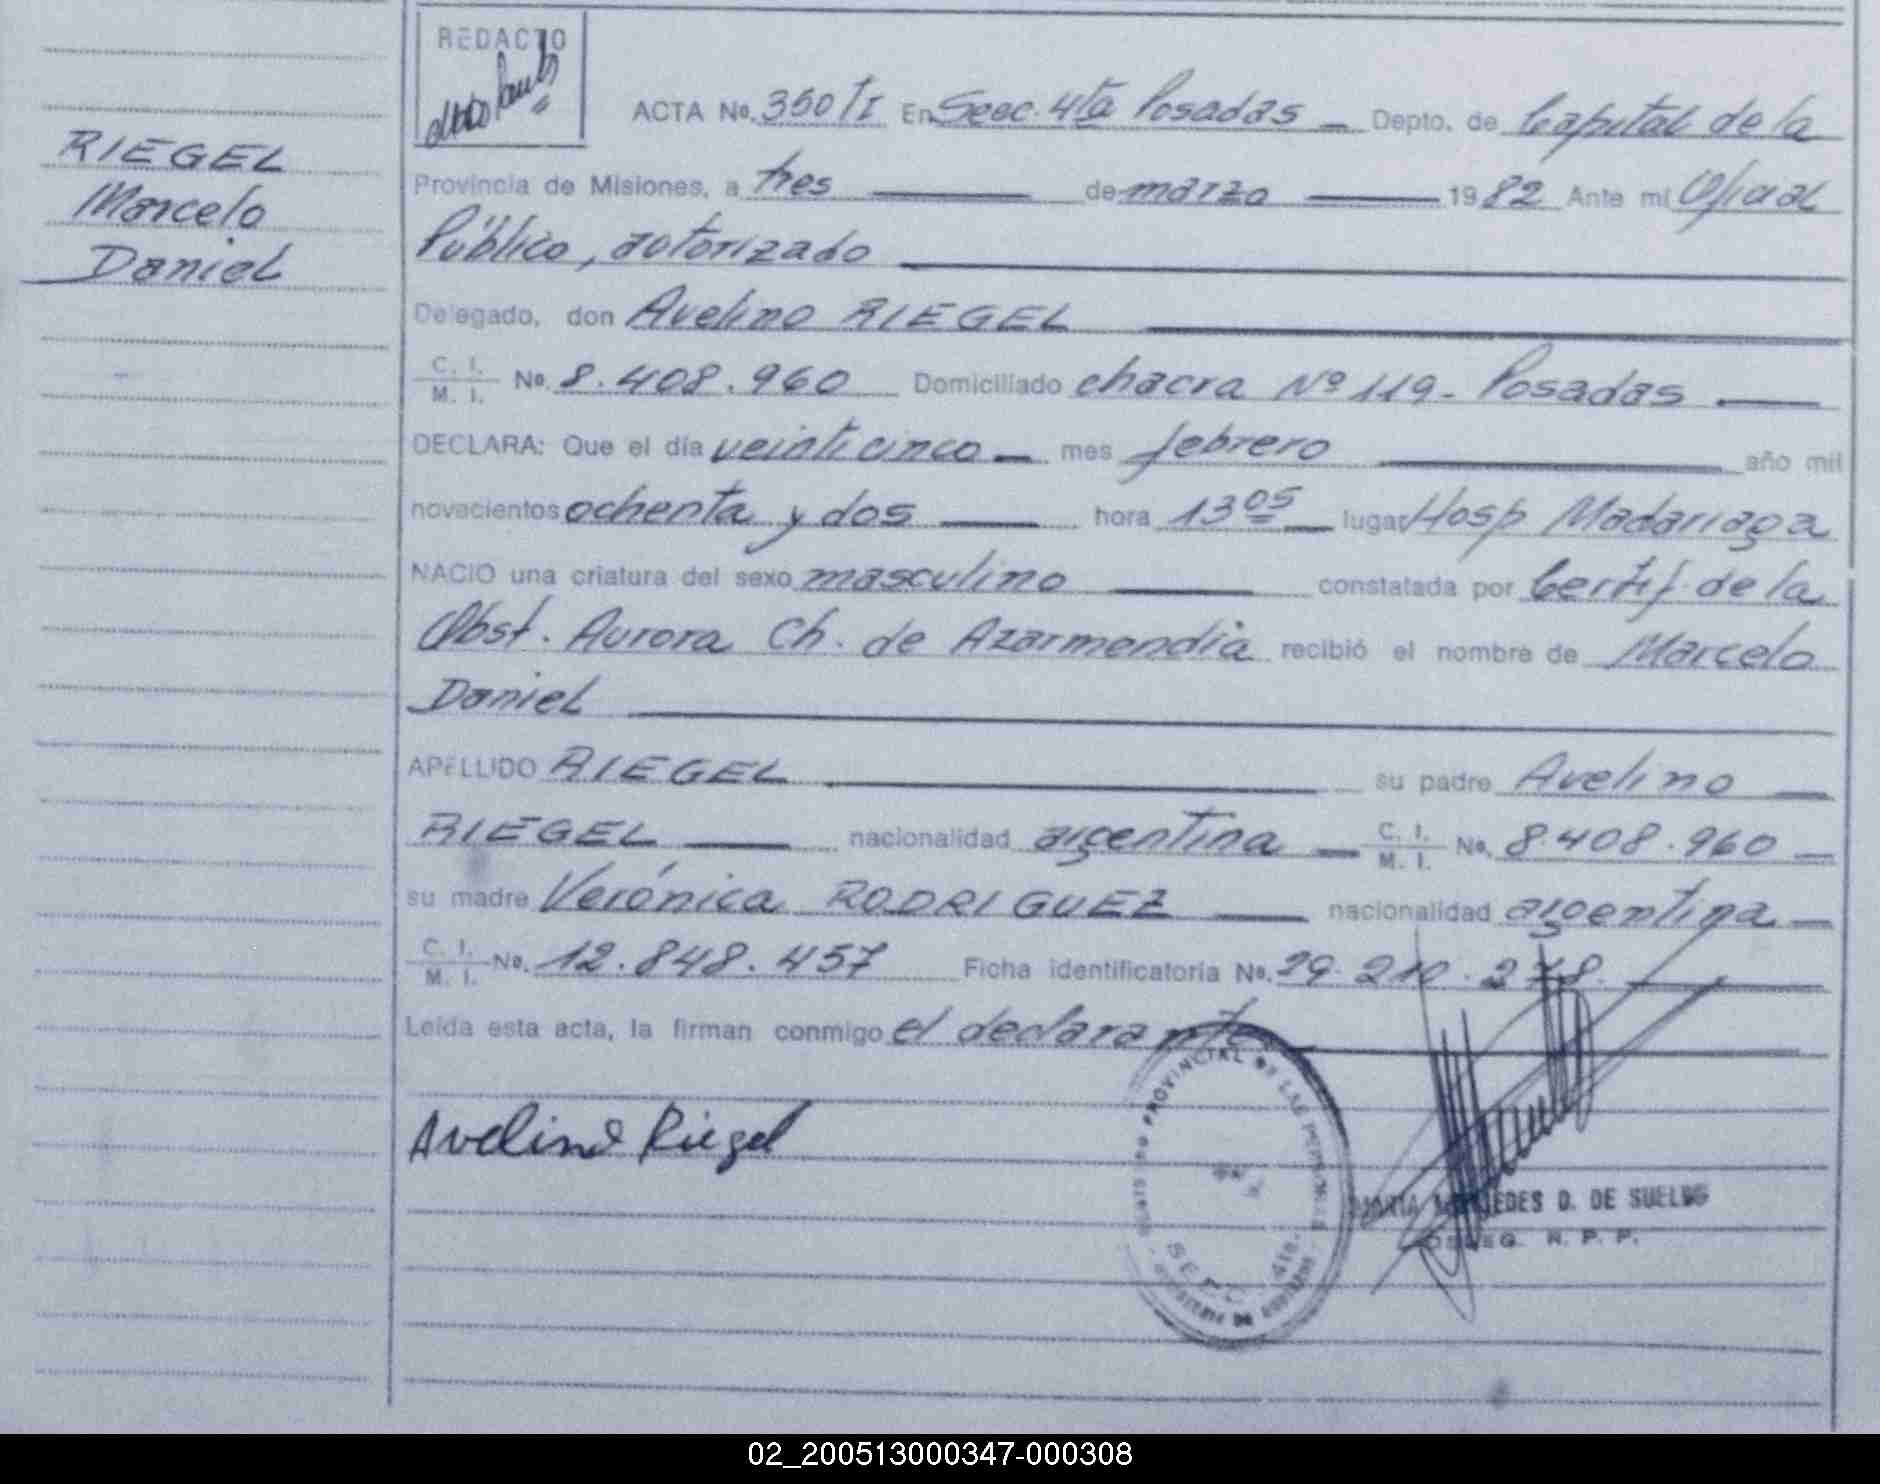 RIEGEL
Marcelo
Daniel
REDACTO
ACTA No. 350 TI En Secc. 4ta Posadas Depto. de Capital de la
Provincia de Misiones, a tres de marzo 1982 Ante mi Oficial
Público, autorizado
Delegado, don Avelino RIEGEL
C. I. M. I. No. 8.408.960 Domiciliado chacra Nº 119- Posadas
DECLARA: Que el día veinticinco mes febrero año mil
novecientos ochenta y dos hora 13 05 lugar Hosp Madariaga
NACIO una criatura del sexo masculino constatada por Certif. de la
Obst. Aurora Ch. de Azarmendia recibió el nombre de Marcelo
Daniel
APELLIDO RIEGEL su padre Avelino
RIEGEL nacionalidad argentina C. I. M. I. No. 8.408.960
su madre Verónica RODRIGUEZ nacionalidad argentina
C. I. M. I. No. 12.848.457 Ficha identificatoria No. 29.210.278.
Leída esta acta, la firman conmigo el declarante
Avelino Riegel
PROVINCIAL DE LAS PERSONAS
SECC. 4ta.
MARIA MERCEDES D. DE SUELDO
DELEG. R. P. P.
02_200513000347-000308